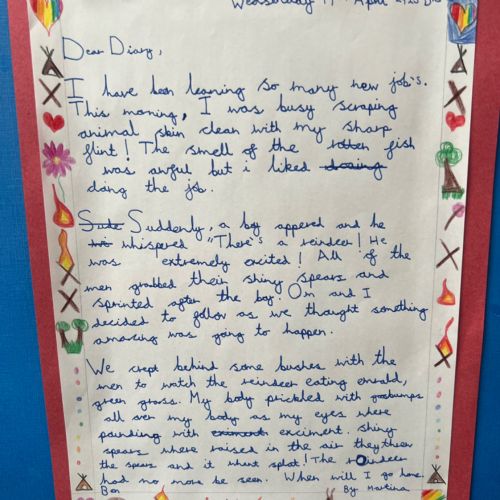 Wednesday 17th April 2420 BC
Dear Diary,
I have been learning so many new job's.
This morning, I was busy scraping
animal skin clean with my sharp
flint! The smell of the rotten fish
was awful but i liked doaing
doing the job.
Sude Suddenly, a boy appered and he
whispered "There's a reindeer! He
was extremely excited! All of the
men grabbed their shiny spears and
sprinted after the boy! Om and I
decided to follow as we thought something
amazing was going to happen.
We crept behind some bushes with the
men to watch the reindeer eating emrald,
green grass. My body prickled with goosbumps
all over my body as my eyes where
pounding with exciment. shiny
spears where raised in the air they threw
the spears and it whent splat! The reindeer
had no more be seen. When will I go home
Ben By Martina